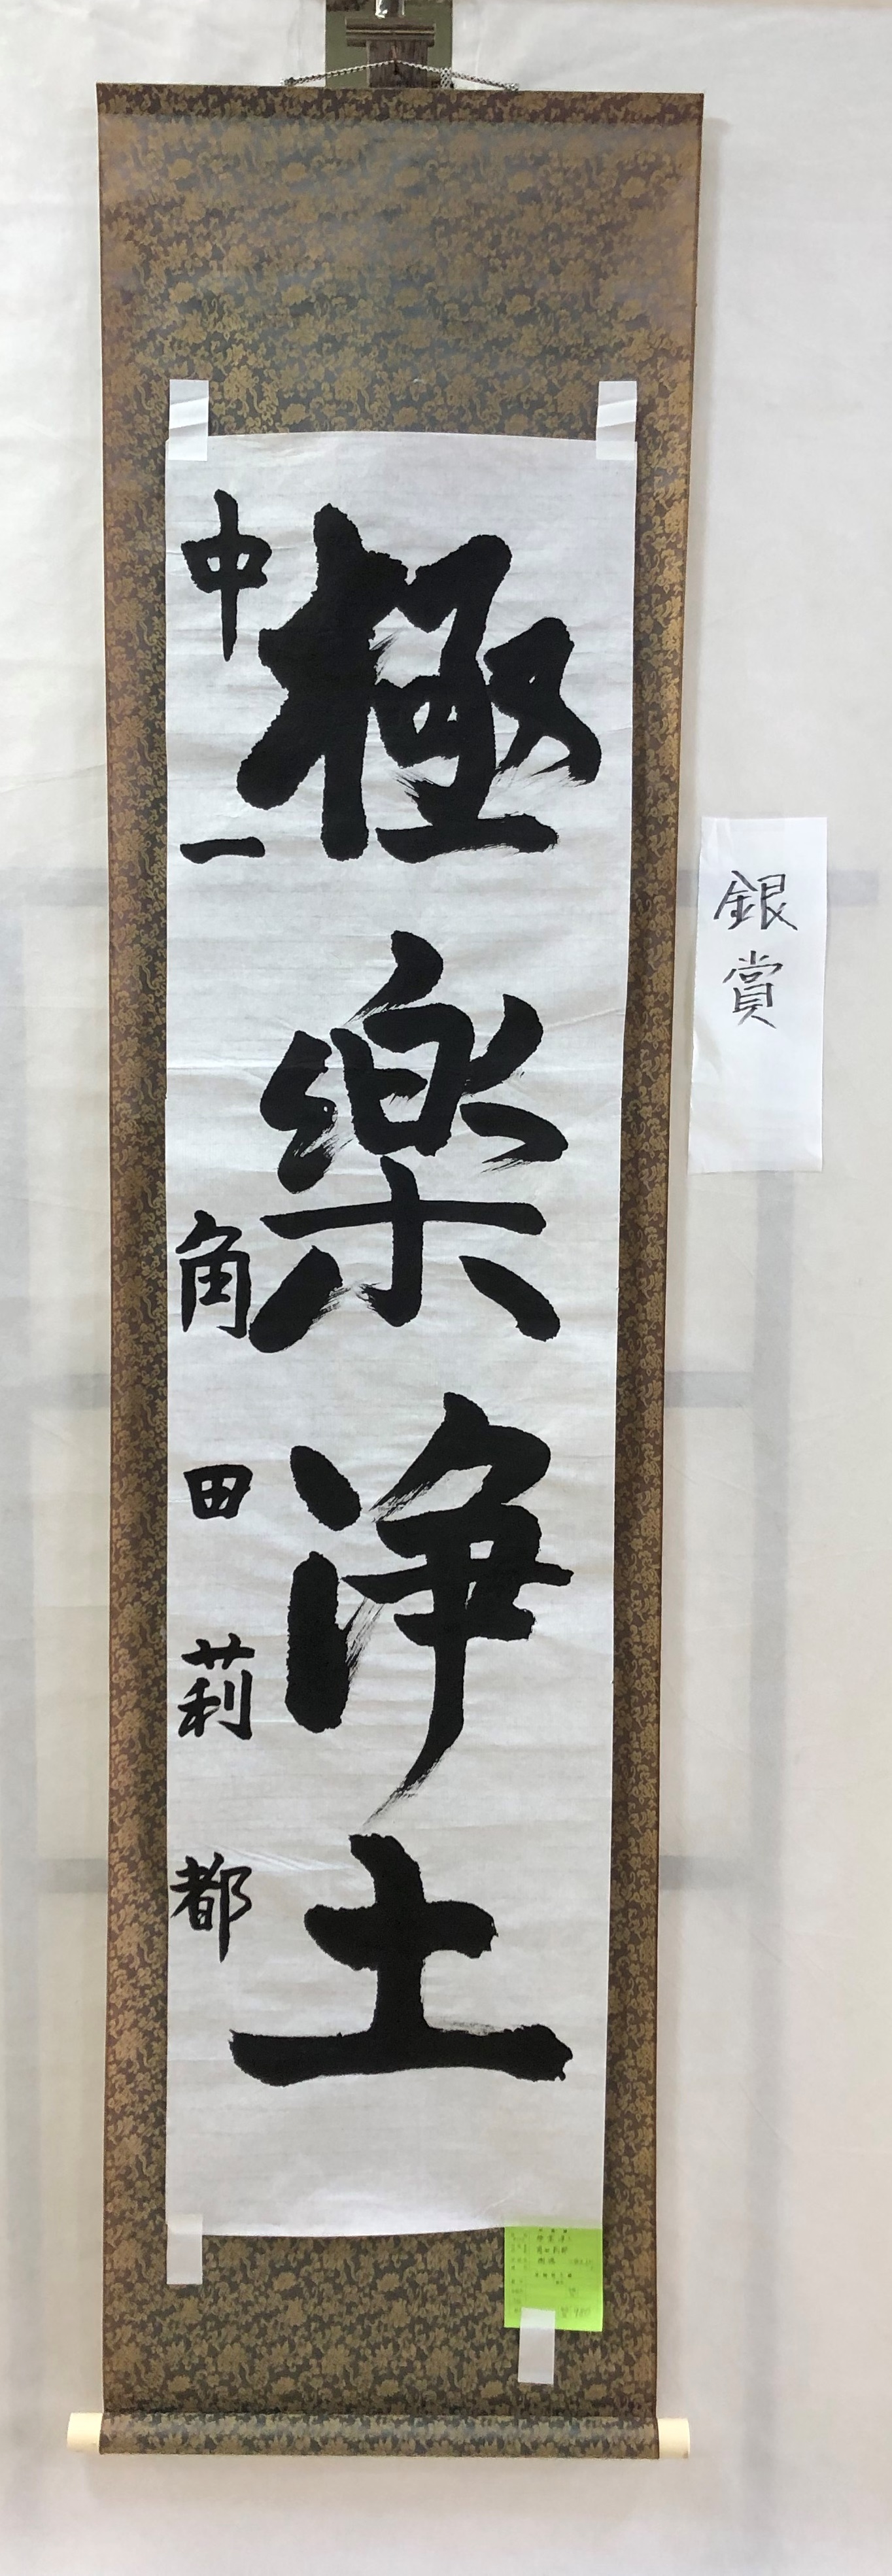 銀賞
極樂浄土
中一 角田莉都